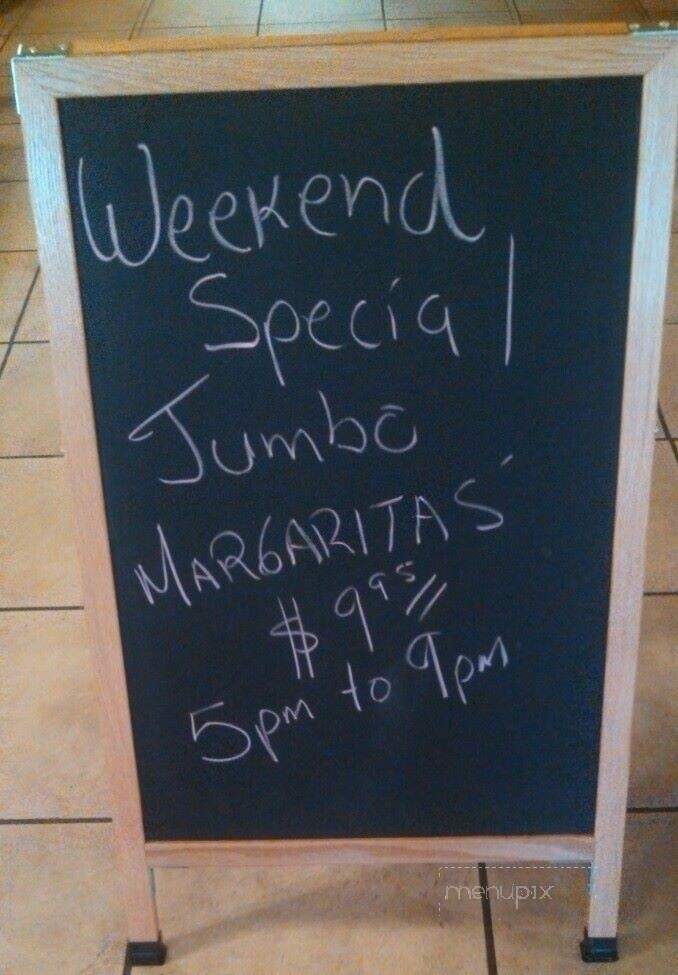 Weekend
Special
Jumbo
MARGARITAS
$ 9 95
5pm to 9pm
menupix